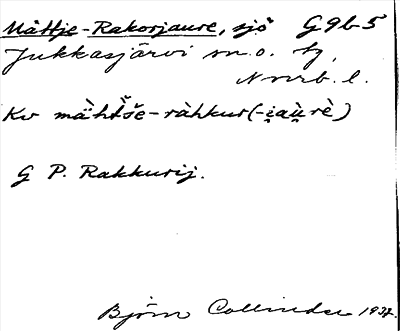 Måttje-Rakorjaure, sjö G9b5
Jukkasjärvi sn.o. tg,
Norrb. l.
Kv mā̀ht̆še-ràhkur(-i̯aù̯rè)
G P. Rakkurij.
Björn Collinder 1937.